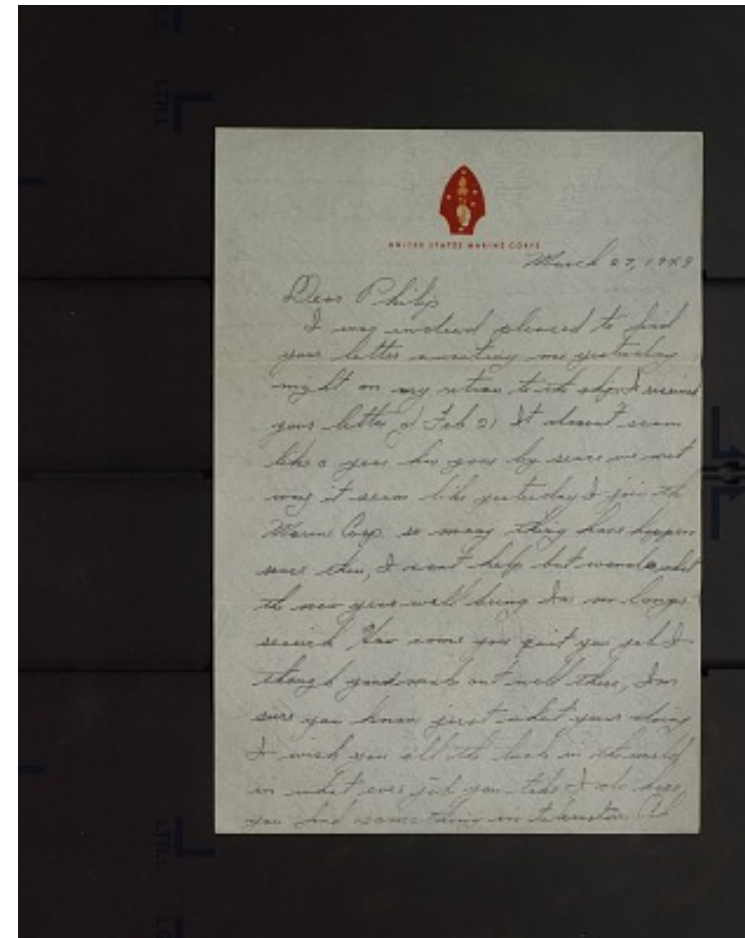 UNITED STATES MARINE CORPS
March 27, 1949
Dear Philip
I was indeed pleased to find
your letter awaiting me yesterday
night on my return to the ship I received
your letter of Feb 21 It doesn't seem
like a year has gone by since we met
it seem like yesterday I join the
Marine Corp. so many thing have happen
since then, I can't help but wonder what
the new year will bring Im no longer
How come you quit you job I
though make out well there, Im
sure you know just what your doing
I wish you all the luck in the world
in what ever job you take I do hope
you find something in